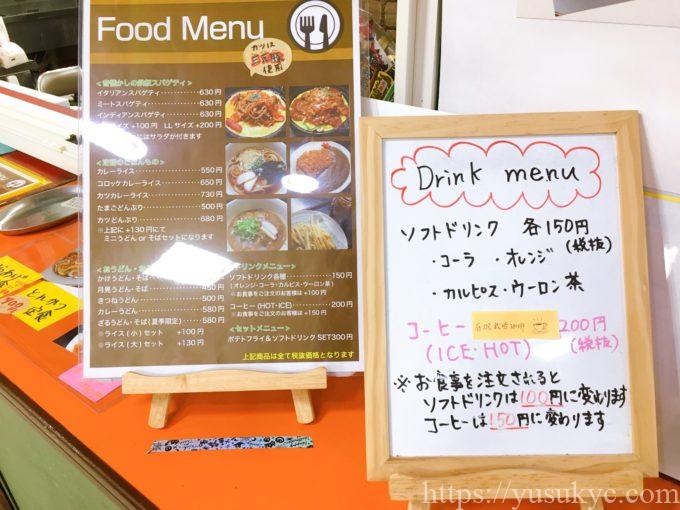 Food Menu
カツは
三元豚
使用
<昔懐かしの鉄板スパゲティ>
イタリアンスパゲティ 630円
ミートスパゲティ 630円
インディアンスパゲティ 630円
サイズ +100円 LLサイズ +200円
にはサラダが付きます
カレーライス 550円
コロッケカレーライス 650円
カツカレーライス 730円
たまごどんぶり 500円
カツどんぶり 680円
※上記に +130円にて
ミニうどん or そばセットになります
かけうどん・そば
月見うどん・そば 450円
きつねうどん 500円
カレーうどん 580円
ざるうどん・そば(夏季限定) 580円
※ライス(小)セット +100円
※ライス(大)セット +130円
ドリンクメニュー>
ソフトドリンク各種 150円
(オレンジ・コーラ・カルピス・ウーロン茶)
※お食事をご注文のお客様は +100円
コーヒー(HOT・ICE) 200円
※お食事をご注文のお客様は +150円
<セットメニュー>
ポテトフライ&ソフトドリンク SET300円
上記商品は全て税抜価格となります
とんかつ
定食
Drink menu
ソフトドリンク 各150円
(税抜)
・コーラ ・オレンジ
・カルピス・ウーロン茶
コーヒー 200円
(ICE・HOT) (税抜)
※お食事を注文されると
ソフトドリンクは100円に変わります
コーヒーは150円に変わります
https://yusukye.com